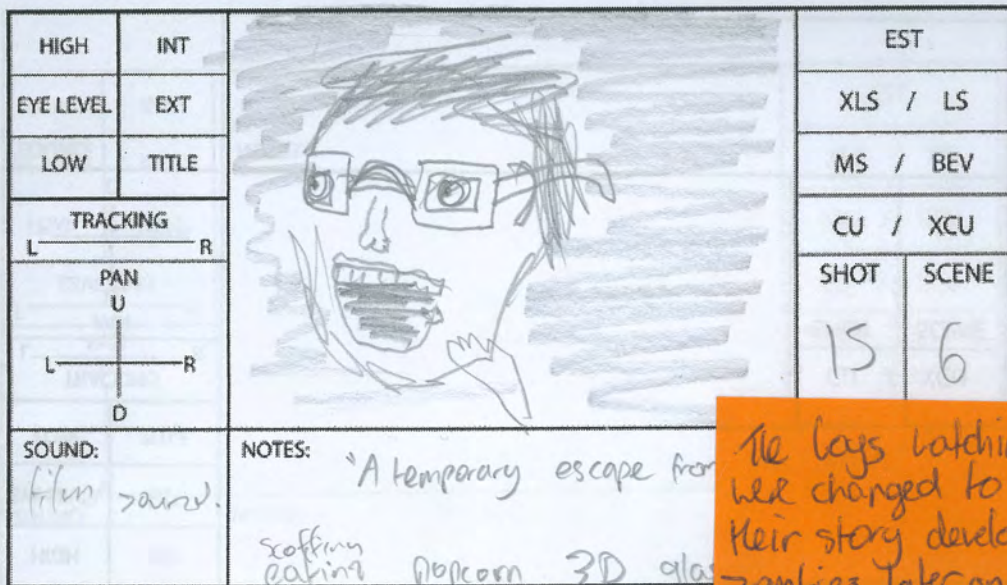 HIGH INT
EYE LEVEL EXT
LOW TITLE
TRACKING
L R
PAN
U
L R
D
EST
XLS / LS
MS / BEV
CU / XCU
SHOT SCENE
15 6
SOUND:
film sound.
NOTES:
"A temporary escape from
scoffing
eating popcorn 3D glas
The boys watchin
were changed to
their story develo